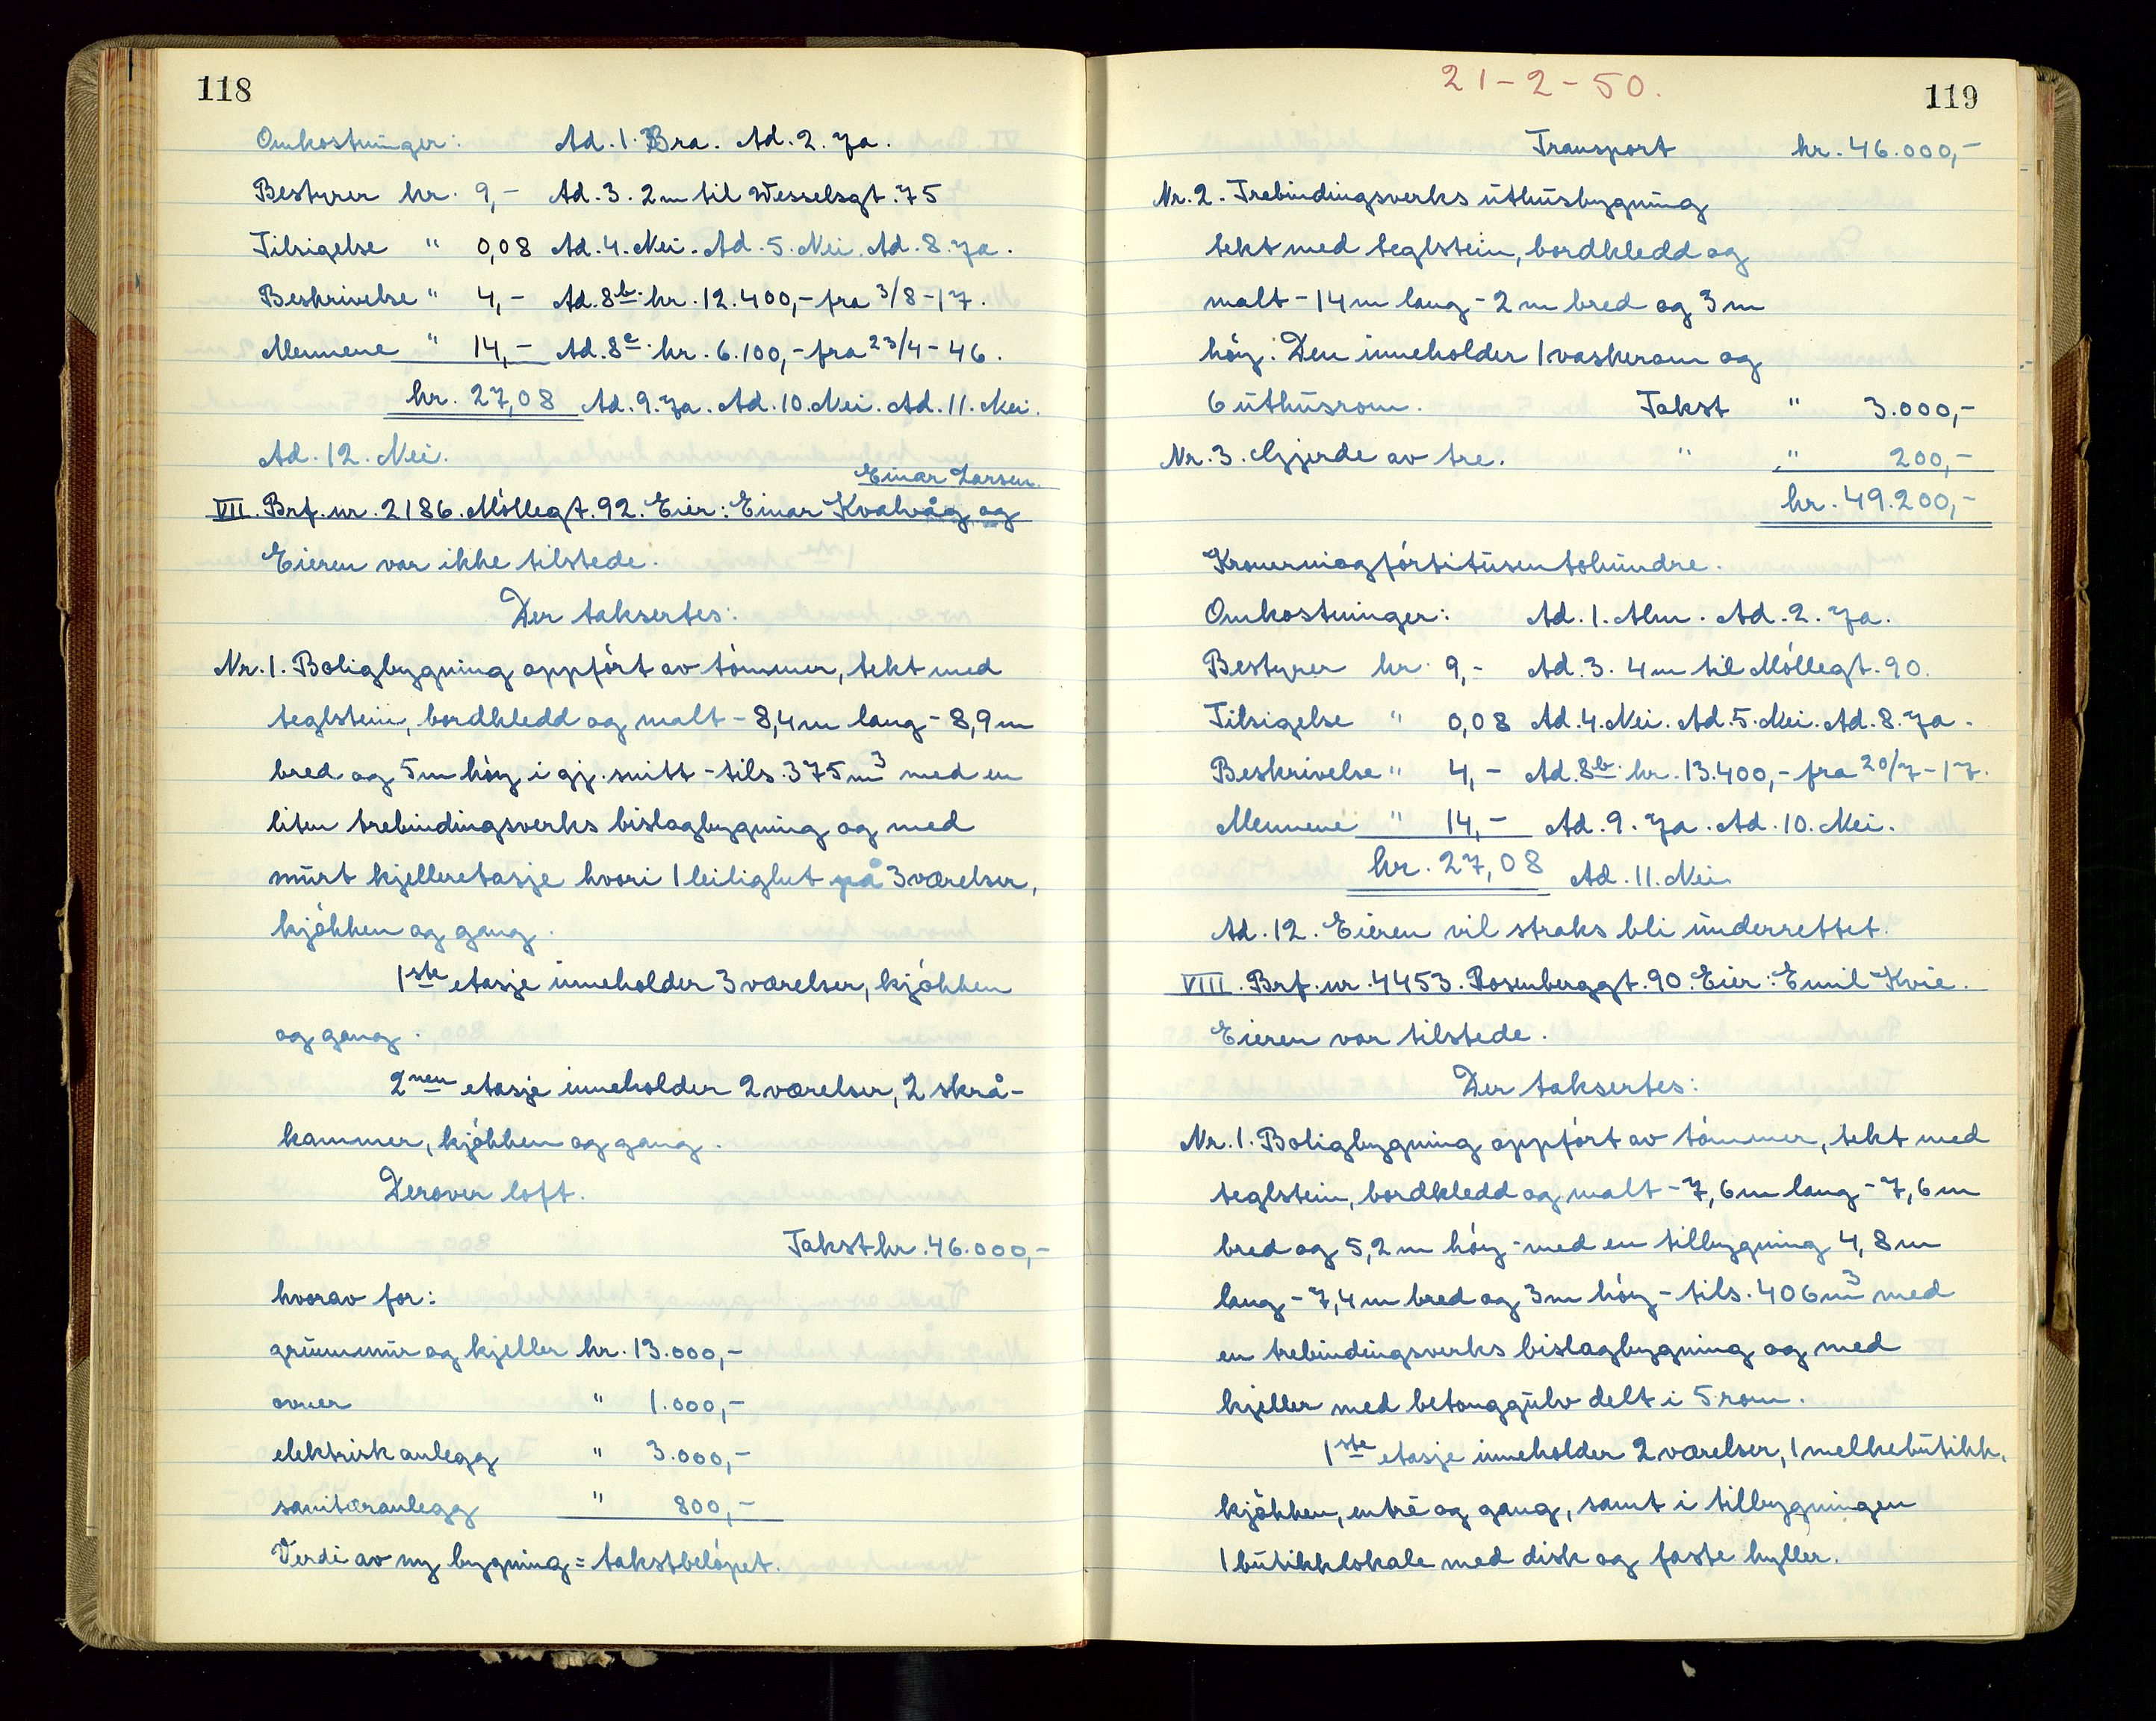 118
Omkostninger: Ad. 1. Bra. Ad. 2. Ja.
Bestyrer kr. 9,- Ad. 3. 2 m til Wesselsgt. 75
Tilsigelse " 0,08 Ad. 4. Nei. Ad. 5. Nei. Ad. 8. Ja.
Beskrivelse " 4,- Ad. 8b. kr. 12.400,- fra 3/8-17.
Mennene " 14,- Ad. 8c. kr. 6.100,- fra 23/4-46.
kr. 27,08 Ad. 9. Ja. Ad. 10. Nei. Ad. 11. Nei.
Ad. 12. Nei.
Einar Larsen.
VII. Brf. nr. 2186. Möllegt. 92. Eier: Einar Kvalvåg og
Eieren var ikke tilstede.
Der taksertes:
Nr. 1. Boligbygning oppfört av tömmer, tekt med
teglstein, bordkledd og malt - 8,4 m lang - 8,9 m
bred og 5 m höy i gj. snitt - tils. 375 m³ med en
liten trebindingsverks bislagbygning og med
mūrt kjelleretasje hvori 1 leilighet på 3 værelser,
kjökken og gang.
1ste etasje inneholder 3 værelser, kjökken
og gang.
2nen etasje inneholder 2 værelser, 2 skrå-
kammer, kjökken og gang.
Derover loft.
Takst kr. 46.000,-
hvorav for:
grūnnmūr og kjeller kr. 13.000,-
ovner " 1.000,-
elektrisk anlegg " 3.000,-
sanitæranlegg " 800,-
Verdi av ny bygning = takstbelöpet.
21-2-50.
119
Transport kr. 46.000,-
Nr. 2. Trebindingsverks ūthūsbygning
tekt med teglstein, bordkledd og
malt - 14 m lang - 2 m bred og 3 m
höy. Den inneholder 1 vaskerom og
6 ūthūsrom. Takst " 3.000,-
Nr. 3. Gjerde av tre. " " 200,-
kr. 49.200,-
Kronerniogförtitūsentohūndre.
Omkostninger: Ad. 1. Alm. Ad. 2. Ja.
Bestyrer kr. 9,- Ad. 3. 4 m til Möllegt. 90.
Tilsigelse " 0,08 Ad. 4. Nei. Ad. 5. Nei. Ad. 8. Ja.
Beskrivelse " 4,- Ad. 8b. kr. 13.400,- fra 20/7-17.
Mennene " 14,- Ad. 9. Ja. Ad. 10. Nei.
kr. 27,08 Ad. 11. Nei
Ad. 12. Eieren vil straks bli ūnderrettet.
VIII. Brf. nr. 4453. Rosenberggt. 90. Eier: Emil Kvie.
Eieren var tilstede.
Der taksertes:
Nr. 1. Boligbygning oppfört av tömmer, tekt med
teglstein, bordkledd og malt - 7,6 m lang - 7,6 m
bred og 5,2 m höy - med en tilbygning 4,8 m
lang - 7,4 m bred og 3 m höy - tils. 406 m³ med
en trebindingsverks bislagbygning og med
kjeller med betonggūlv delt i 5 rom.
1ste etasje inneholder 2 værelser, 1 melkebūtikk,
kjökken, entré og gang, samt i tilbygningen
1 būtikklokale med disk og faste hyller.